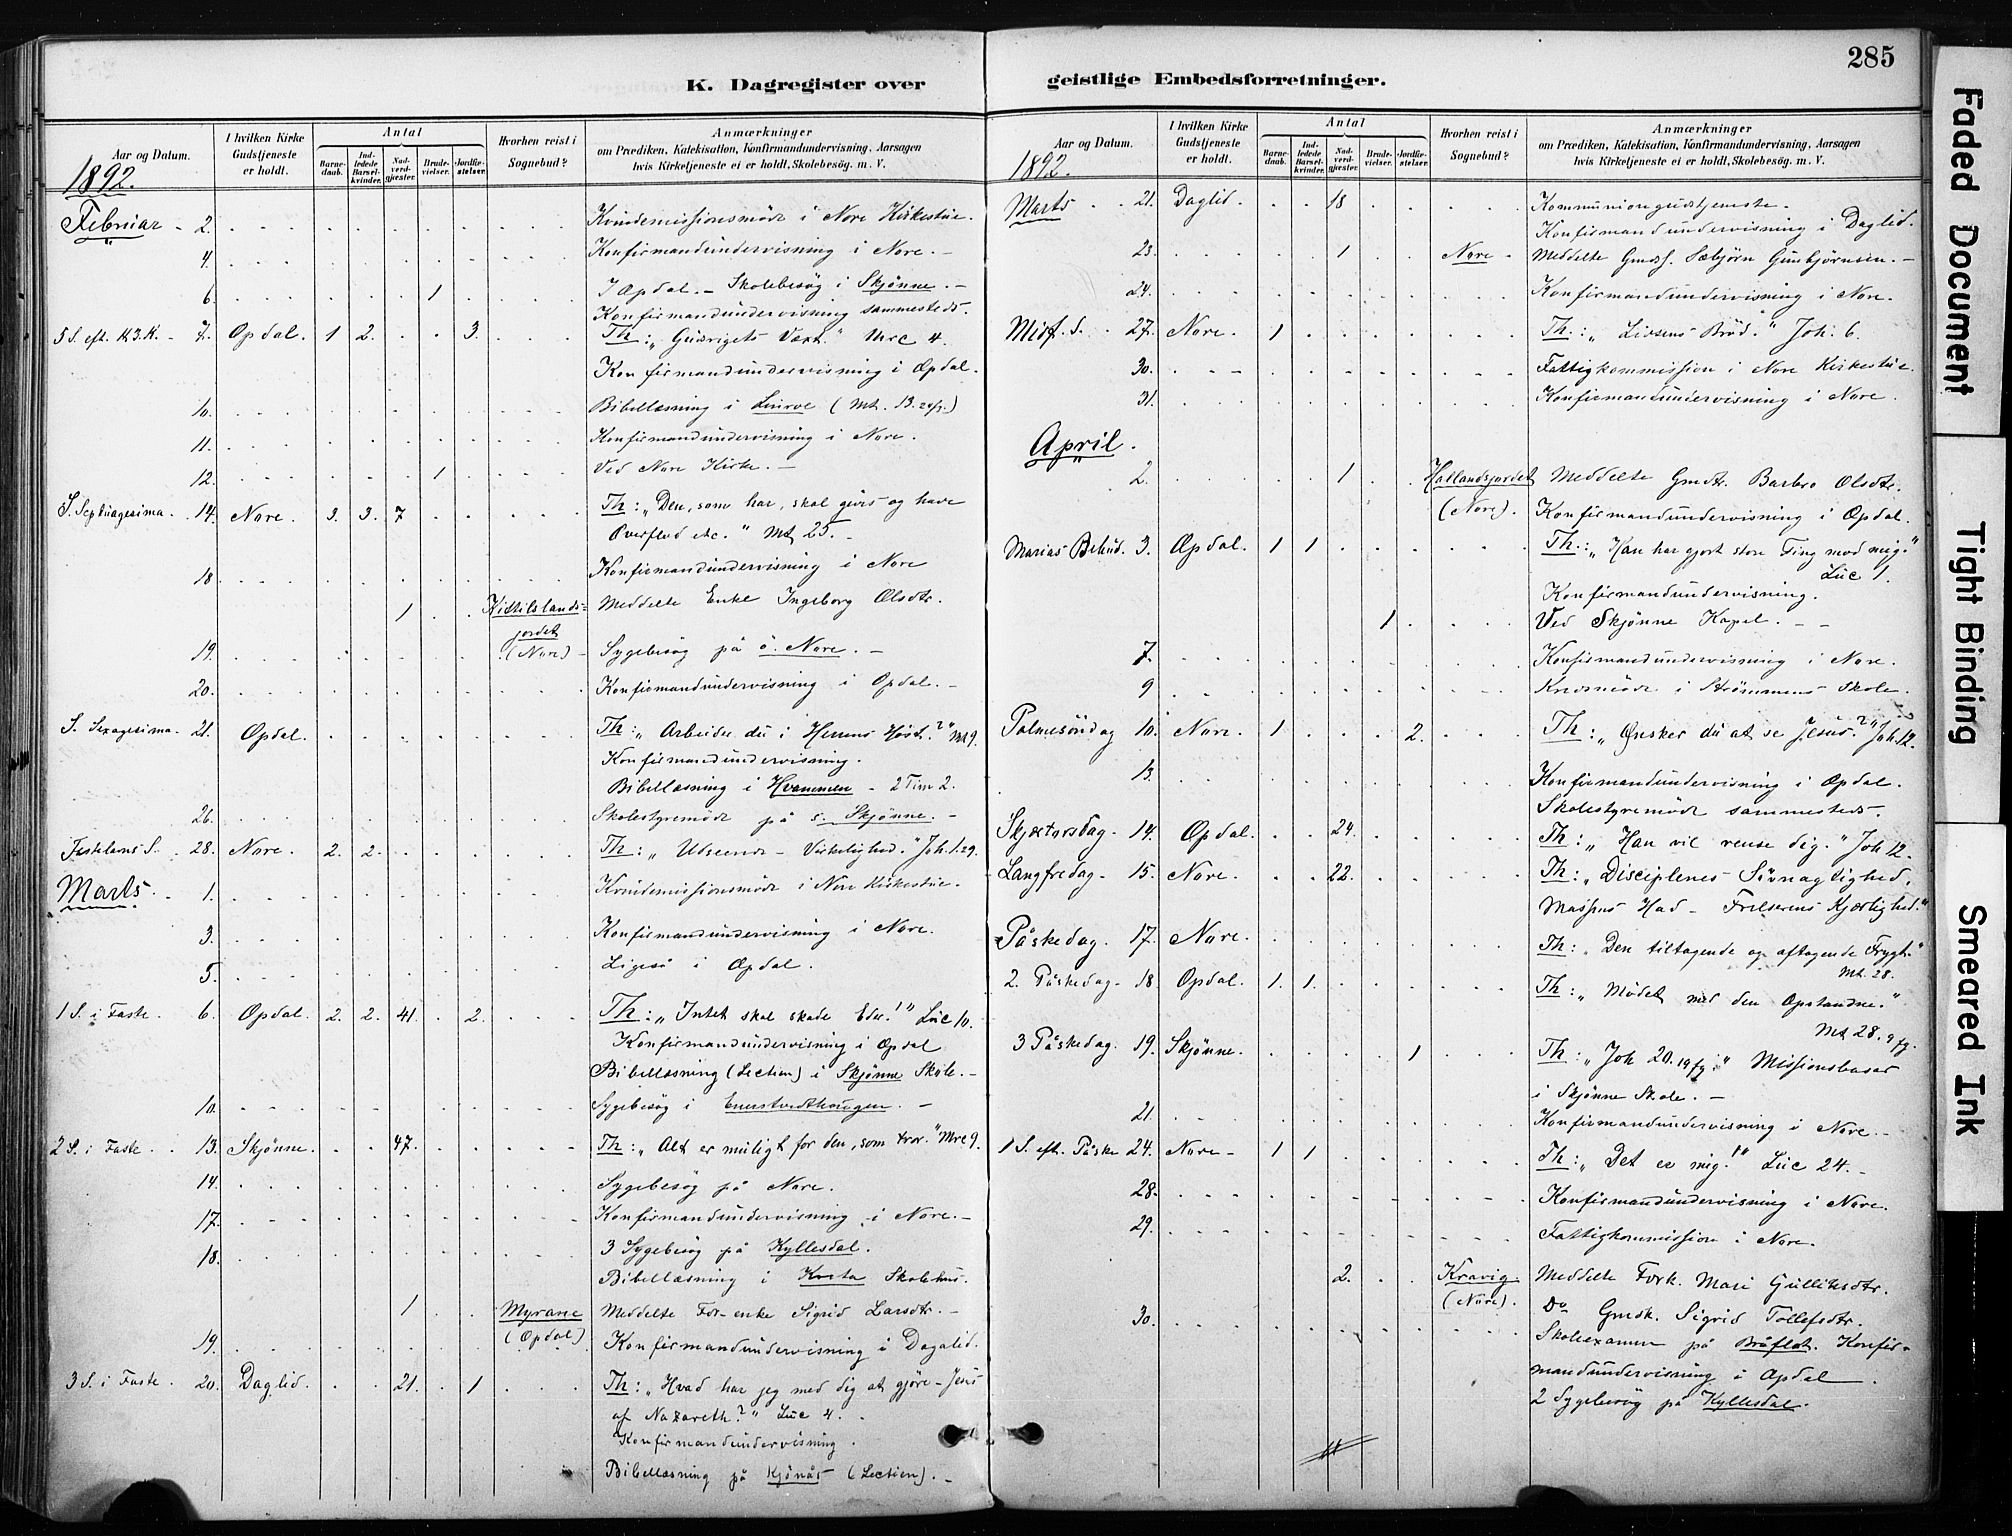 K. Dagregister over
Aar og Datum.
1892.
I hvilken Kirke Gudstjeneste er holdt.
Antal
Barnedaab.
Indledede Barselkvinder.
Nadverdgjester.
Brudevielser.
Jordfæstelser.
Hvorhen reist i Sognebud?
Anmærkninger
om Prædiken, Katekisation, Konfirmandundervisning, Aarsagen
hvis Kirketjeneste ei er holdt, Skolebesøg. m. V.
Februar - 2. Kvindemissionsmöde i Nore Kirkestue.
4. Konfirmandundervisning i Nore. -
6. 1 I Opdal. - Skolebesøg i Skjønne. -
Konfirmandundervisning sammesteds.
5 S. eft. H.3.K. - 7. Opdal. 1 2. 3. Th: „Gudsrigets Væxt." Mrc 4.
Konfirmandundervisning i Opdal.
10. Bibellæsning i (Mt. 13.
11. Konfirmandundervisning i Nore.
12. 1 Ved Nore Kirke. -
S. Septuagesima. 14. Nore. 3. 3. 7 Th: „Den, som har, skal gives og have
Overflod etc." Mt 25. -
18 Konfirmandundervisning i Nore
1 Kittilslands-
jordet
(Nore) Meddelte Enke Ingeborg Olsdtr.
19. Sygebesøg på ö. Nore. -
20. Konfirmandundervisning i Opdal. -
S. Sexagesima. 21. Opdal. Th: „Arbeider du i Herrens Høst?" Mt 9.
Konfirmandundervisning.
Bibellæsning i Hvammen - 2 Tim 2.
26. Skolestyremöde på s. Skjønne. -
Fastelavns S. 28. Nore. 2. 2. Th: „Udseende - Virkelighed." Joh. 1.29.
Marts. 1. Kvindemissionsmöde i Nore Kirkestue.
3. Konfirmandundervisning i Nore.
5. Ligeså i Opdal.
1 S. i Faste. 6. Opdal. 2. 2. 41. 2. Th: „Intet skal skade Eder!" Luc 10.
Konfirmandundervisning i Opdal
Bibellæsning (Lection) i Skjønne Skole. -
10. Sygebesøg i
2 S. i Faste. 13. Skjønne. 47. Th: „Alt er muligt for den, som tror." Mrc 9.
14. Sygebesøg på Nore.
17. Konfirmandundervisning i Nore. -
18. 3 Sygebesøg på Kyllesdal.
Bibellæsning i Skolehus.
1 Myrane
(Opdal) Meddelte For. enke Sigrid Larsdtr. -
19. Konfirmandundervisning i Dagalid.
3 S. i Faste. 20. Daglid. 21. 1 Th: „Hvad har jeg med dig at gjöre - Jesus
af Nazareth?" Luc 4.
Konfirmandundervisning.
Bibellæsning på Kjönås (Lection). -
285
geistlige Embedsforretninger.
Aar og Datum.
1892.
I hvilken Kirke Gudstjeneste er holdt.
Antal
Barnedaab.
Indledede Barselkvinder.
Nadverdgjester.
Brudevielser.
Jordfæstelser.
Hvorhen reist i Sognebud?
Anmærkninger
om Prædiken, Katekisation, Konfirmandundervisning, Aarsagen
hvis Kirketjeneste ei er holdt, Skolebesøg. m. V.
Marts 21. Daglid. 18 Kommuniongudstjeneste.
Konfirmandundervisning i Daglid.
23. 1 Nore - Meddelte Sæbjörn Gunbjörnsen. -
24. Konfirmandundervisning i Nore.
Midf. S. 27. Nore. 1 Th.: „Livsens Bröd." Joh. 6.
30. Fattigkommission i Nore Kirkestue.
31. Konfirmandundervisning i Nore.
April.
2. 1 Hallandsjordet
(Nore). Meddelte Barbro Olsdtr.
Konfirmandundervisning i Opdal.
Marias Bebud. 3. Opdal. 1 1 Th.: „Han har gjort store Ting mod mig."
Luc 1.
Konfirmandundervisning.
1 Ved Skjønne Kapel. - -
7. Konfirmandundervisning i Nore.
9 Kredsmöde i Strömmens Skole.
Palmesöndag 10. Nore. 1 2. Th: „Ønsker du at se Jesus?" Joh. 12.
13. Konfirmandundervisning i Opdal.
Skolestyremöde sammesteds.
Skjærtorsdag - 14. Opdal. 24. Th: „Han vil rense dig." Joh 12.
Langfredag - 15. Nore. 22. Th: „Disciplenes Sövnagtighed,
Massens Had - Frelserens Kjærlighed."
Påskedag. 17. Nore. Th: „Den tiltagende og aftagende Frygt."
Mt. 28.
2. Påskedag - 18 Opdal. 1. 1. Th: „Mödet med den Opstandne."
Mt 28, 9 fg.
3 Påskedag. 19. Skjønne. 1 Th: „Joh 20. 19 fg." Missionsbasar
i Skjønne Skole. -
21. Konfirmandundervisning i Nore. -
1 S. eft. Påske 24. Nore - 1 1 Th: „Det er mig!" Luc 24. -
28. Konfirmandundervisning i Nore.
29. Fattigkommission i Nore.
2. Kravig
(Nore). Meddelte Fork. Mari Gulliksdtr.
30. Do Gmdk. Sigrid Tollefsdtr.
Skoleexamen på Bråflot. Konfir-
mandundervisning i Opdal.
2 Sygebesög på Kyllesdal.
Faded Document
Tight Binding
Smeared Ink